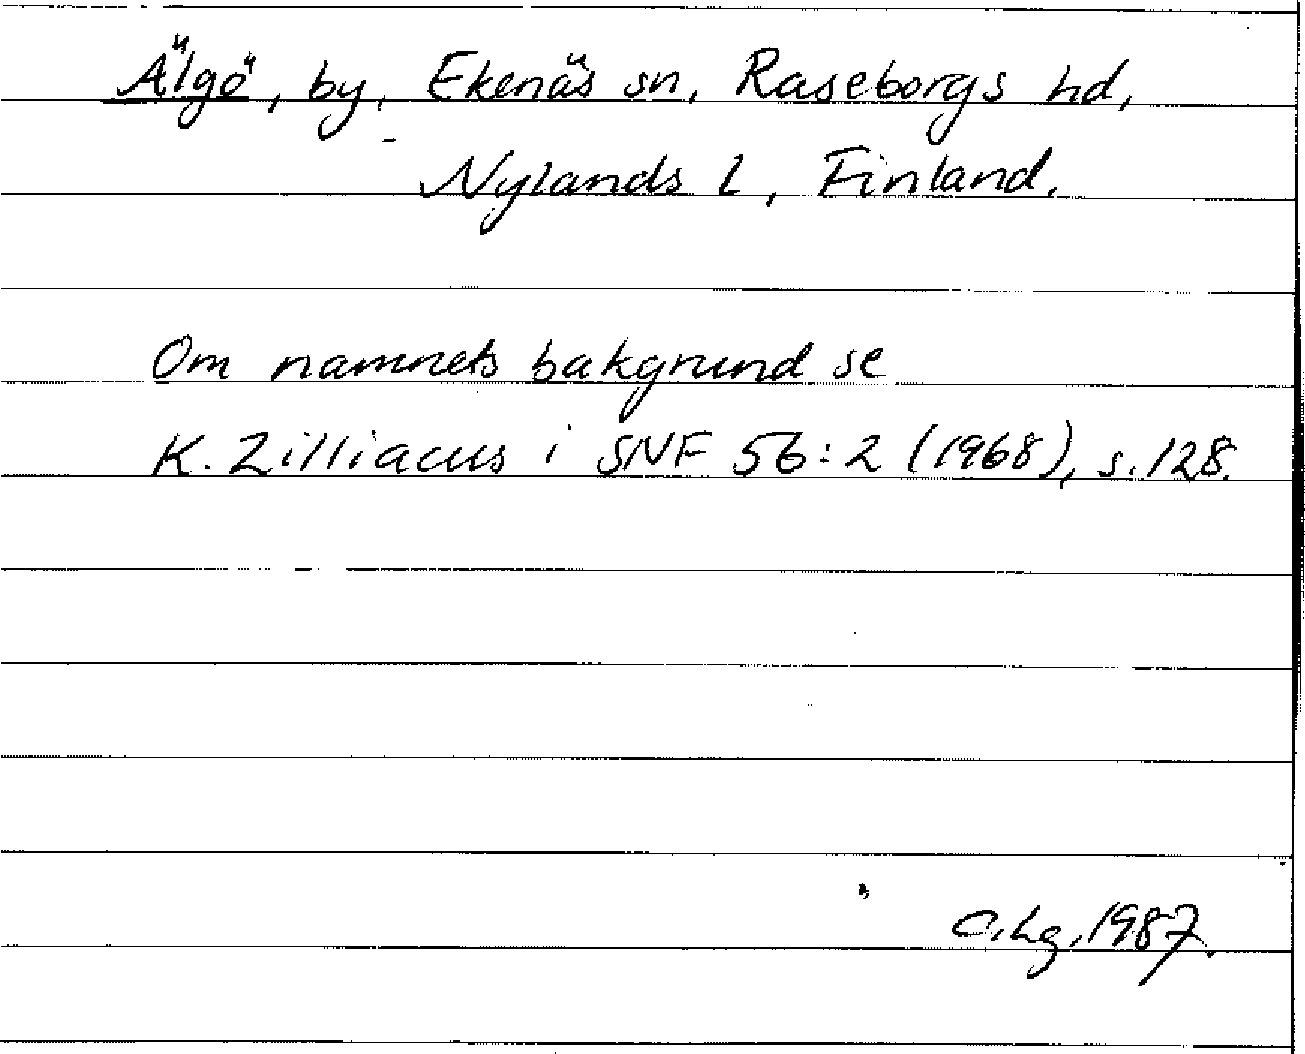 Älgö, by, Ekenäs sn, Raseborgs hd,
Nylands l, Finland.
Om namnets bakgrund se
K. Zilliacus i SNF 56:2 (1968), s. 128.
C. Lg, 1987.